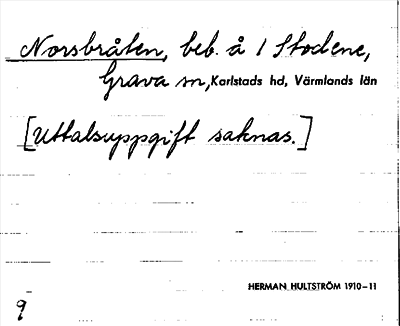 Norsbråten, beb. å 1 Stodene,
Grava sn, Karlstads hd, Värmlands län
[Uttalsuppgift saknas.]
HERMAN HULTSTRÖM 1910–11
9